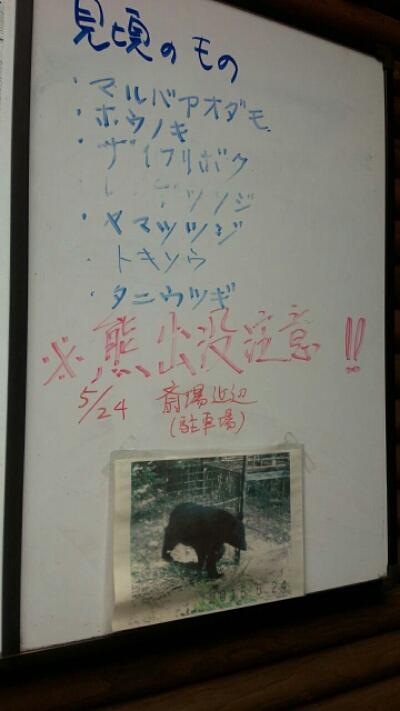 見頃のもの
・マルバアオダモ
・ホウノキ
・ザイフリボク
ツツジ
・ヤマツツジ
・トキソウ
・タニウツギ
※熊出没注意!!
5/24 斎場近辺
(駐車場)